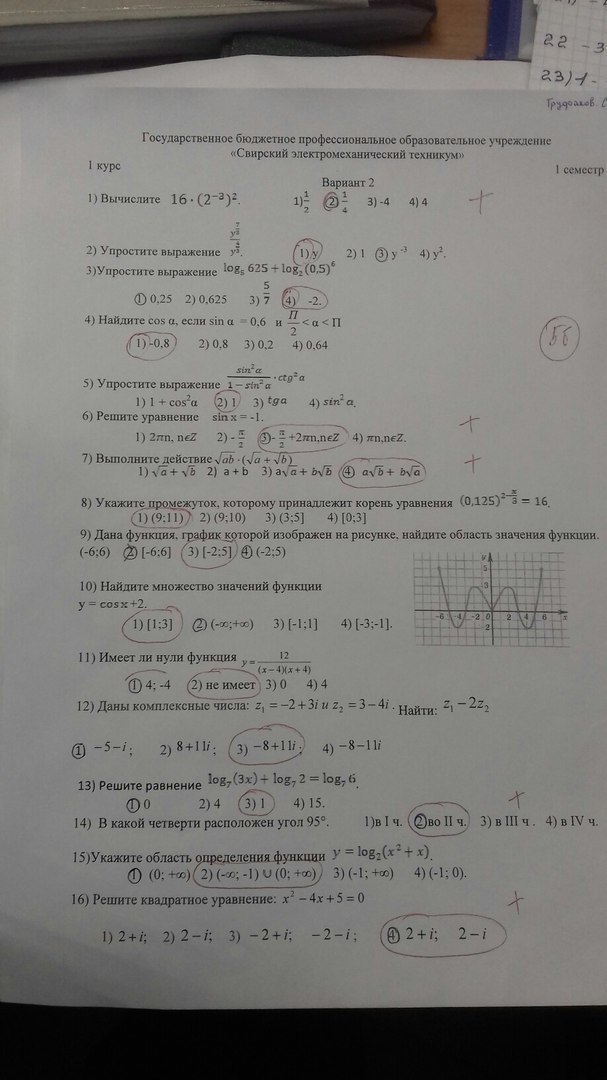 22 - 3
23) 1 -
Государственное бюджетное профессиональное образовательное учреждение
«Свирский электромеханический техникум»
1 курс
1 семестр
Вариант 2
1) Вычислите 16·(2⁻³)². 1) 1/2 2) 1/4 3) -4 4) 4 +
2) Упростите выражение 1) y 2) 1 3) y⁻³ 4) y².
3)Упростите выражение log₅ 625 + log₂(0,5)⁶
1) 0,25 2) 0,625 3) 5/7 4) -2.
4) Найдите cos α, если sin α = 0,6 и П/2 < α < П
1) -0,8 2) 0,8 3) 0,2 4) 0,64
5б
5) Упростите выражение sin²α/(1−sin²α)·ctg²α
1) 1 + cos²α 2) 1 3) tgα 4) sin²α.
6) Решите уравнение sin x = -1. +
1) 2πn, nϵZ 2) - π/2 3)- π/2 +2πn,nϵZ 4) πn,nϵZ.
7) Выполните действие √ab·(√a + √b) +
1) √a + √b 2) a + b 3) a√a + b√b 4) a√b + b√a
8) Укажите промежуток, которому принадлежит корень уравнения
1) (9;11) 2) (9;10) 3) (3;5] 4) [0;3]
9) Дана функция, график которой изображен на рисунке, найдите область значения функции.
(-6;6) 2) [-6;6] 3) [-2;5] 4) (-2;5)
y
5
3
-6 -4 -2 0 2 4 6 x
2
10) Найдите множество значений функции
y = cosx +2.
1) [1;3] 2) (-∞;+∞) 3) [-1;1] 4) [-3;-1].
11) Имеет ли нули функция y = 12/((x−4)(x+4))
1) 4; -4 2) не имеет 3) 0 4) 4
12) Даны комплексные числа: z₁ = −2+3i и z₂ = 3−4i . Найти: z₁ − 2z₂
1) −5−i ; 2) 8+11i ; 3) −8+11i ; 4) −8−11i
13) Решите уравнение log₇(3x) + log₇ 2 = log₇ 6. +
1) 0 2) 4 3) 1 4) 15.
14) В какой четверти расположен угол 95°. 1)в I ч. 2)во II ч. 3) в III ч . 4) в IV ч.
15)Укажите область определения функции y = log₂(x² + x).
1) (0; +∞) 2) (-∞; -1) ∪ (0; +∞) 3) (-1; +∞) 4) (-1; 0).
16) Решите квадратное уравнение: x² − 4x + 5 = 0 +
1) 2+i; 2) 2−i; 3) −2+i; −2−i ; 4) 2+i; 2−i